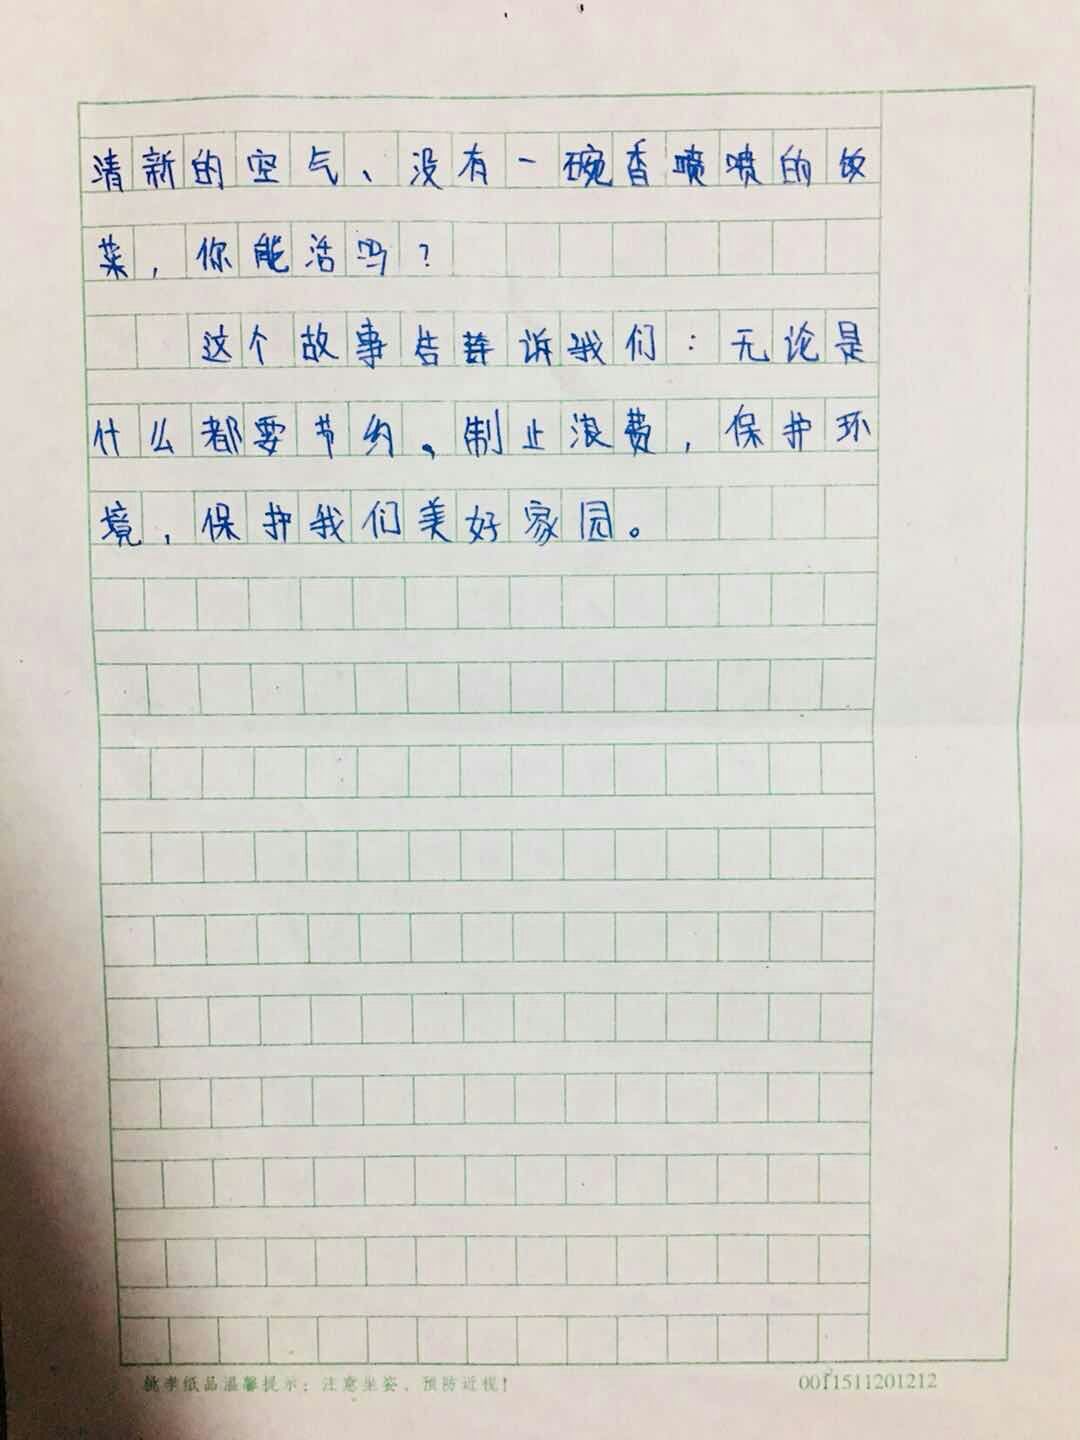 清新的空气、没有一碗香喷喷的饭
菜，你能活吗？
这个故事告诉我们：无论是
什么都要节约。制止浪费，保护环
境，保护我们美好家园。
桃李纸品温馨提示：注意坐姿，预防近视！
0011511201212